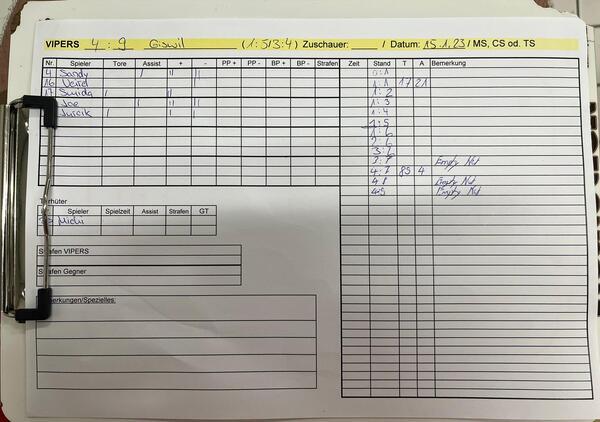 VIPERS 4 : 9 Giswil (1:5/3:4) Zuschauer: / Datum: 15.1.23 / MS, CS od. TS
Nr. Spieler Tore Assist + - PP + PP - BP + BP - Strafen
4 Sandy
16
17
Joe
Zeit Stand T A Bemerkung
0:1
1:1 17 21
1:2
1:3
1:4
1:5
1:6
2:6
3:6
3:7 Empty Net
4:7 85 4
4:8 Empty Net
4:9 Empty Net
Spieler Spielzeit Assist Strafen GT
Michi
Strafen VIPERS
Strafen Gegner